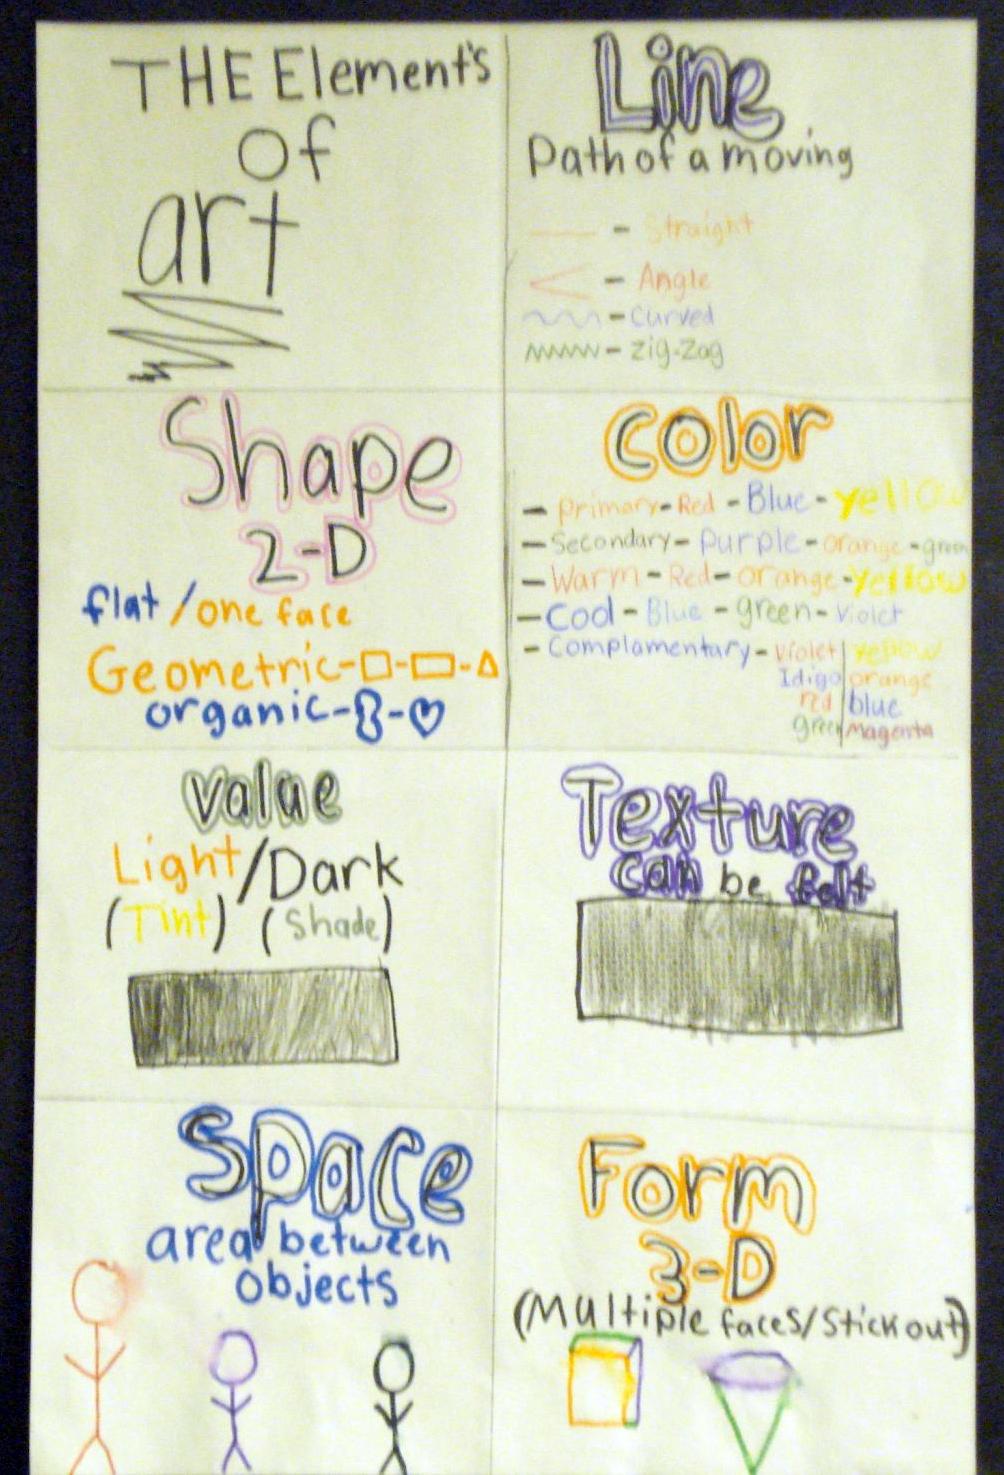 THE Element's
Of
art
Line
Path of a moving
- Straight
- Angle
- Curved
- Zig-Zag
Shape
2-D
flat / one face
Geometric-
organic-
Color
- Primary - Red - Blue - yellow
- Secondary - Purple - orange - green
- Warm - Red - orange - yellow
- Cool - Blue - green - Violet
- Complamentary - Violet | yellow
Idigo | orange
red | blue
green | Magenta
Value
Light / Dark
(Tint) (Shade)
Texture
can be felt
Space
area between
objects
Form
3-D
(Multiple faces/Stick out)